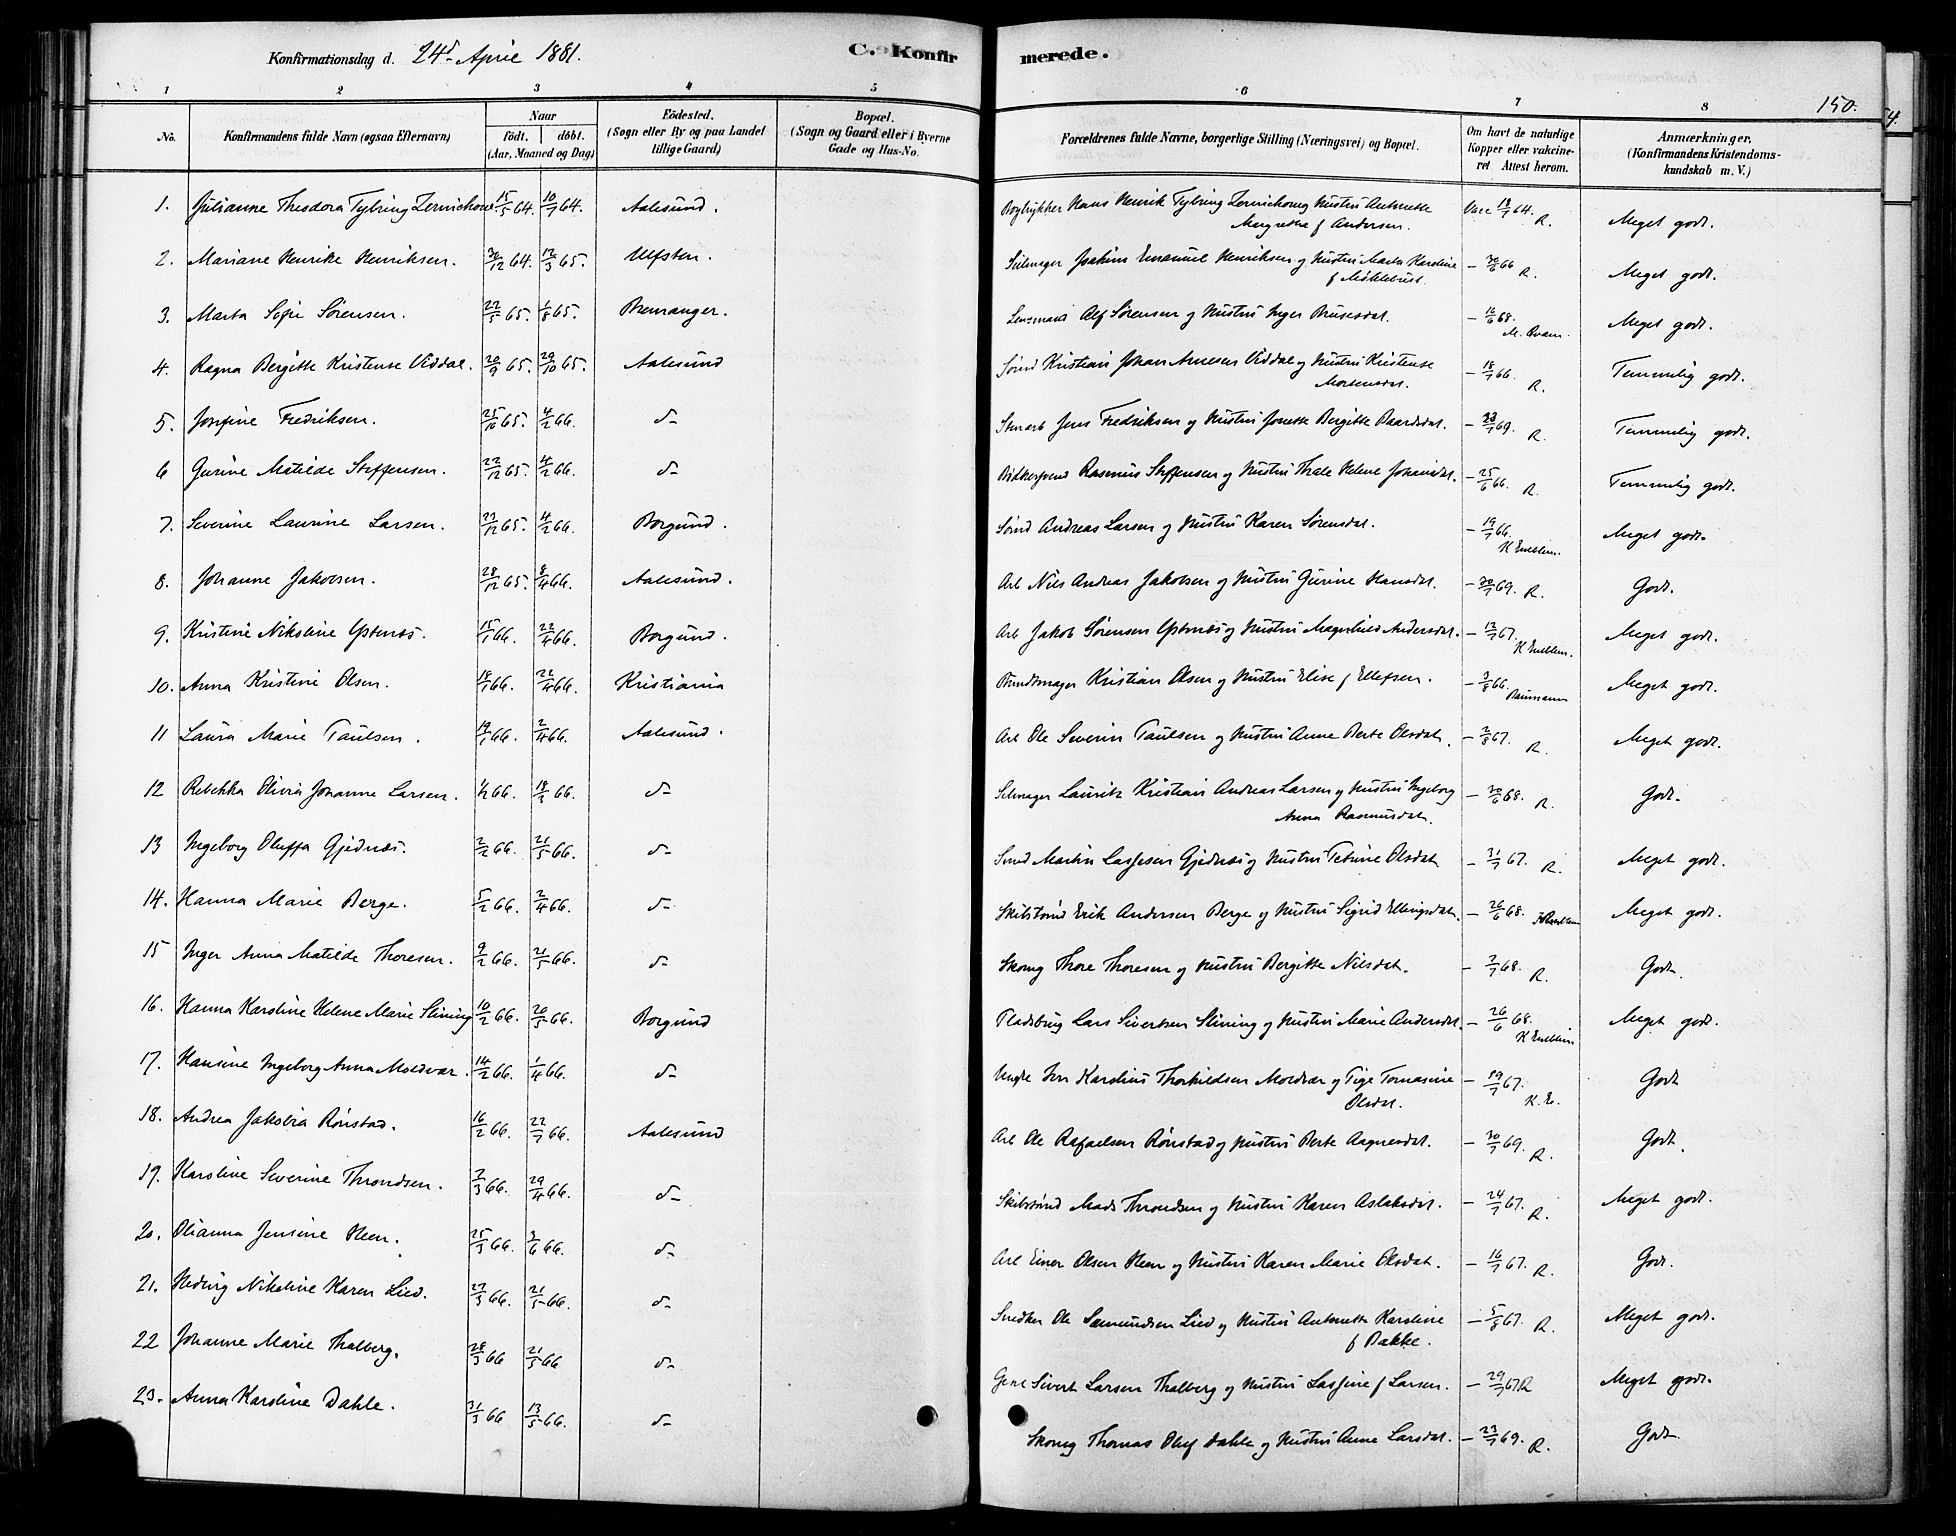 Konfirmationsdag d. 24d April 1881.
C. Konfirmerede.
150.
1 2 3 4 5 6 7 8
No.
Konfirmandens fulde Navn (ogsaa Efternavn)
Naar
födt. döbt.
(Aar, Maaned og Dag)
Födested.
(Sogn eller By og paa Landet
tillige Gaard)
Bopæl.
(Sogn og Gaard eller i Byerne
Gade og Hus-No.
Forældrenes fulde Navne, borgerlige Stilling (Næringsvei) og Bopæl.
Om havt de naturlige
Kopper eller vakcine-
ret Attest herom.
Anmærkninger.
(Konfirmandens Kristendoms-
kundskab m. V.)
1. Julianne Theodora Tybring 15/5 64. 10/7 64. Aalesund. Bogtrykker Hans Henrik Tybring og Hustru Antonette Vacc 18/7 64. R. Meget godt.
Margrethe f Andersen.
2. Mariane Henrike Henriksen. 30/12 64. 12/3 65. Ulfsten. Seilmager Joakim Emanuel Henriksen og Hustru Marta Karoline - 30/6 66 R. Meget godt.
f Möklebust.
3. Marta Sofie Sørensen. 22/5 65. 1/8 65. Bremanger. Lensmand Alf Sørensen og Hustru Inger - 16/6 68. Meget godt.
4. Ragna Bergitte Kristense Viddal. 20/9 65. 29/10 65. Aalesund Sömd Kristian Johan Arnesen Viddal og Hustru Kristense - 18/7 66. R. Temmelig godt.
Mortensdat.
5. Josefine Fredriksen. 25/10 65. 4/2 66. do Jens Fredriksen og Hustru Jonette Bergitte Baardsdat. - 23/7 69. R. Temmelig godt.
6 Gurine Matilde Steffensen. 22/12 65. 4/2 66. do Bödkersvend Rasmus Steffensen og Hustru Thale Helene Johansdat. - 25/6 66. R. Temmelig godt.
7. Severine Laurine Larsen. 23/12 65. 4/2 66. Borgund. Sömd Andreas Larsen og Hustru Karen Sørensdat. - 19/7 66. K Emblem. Meget godt.
8. Johanne Jakobsen. 28/12 65. 8/4 66. Aalesund. Arb Nils Andreas Jakobsen og Hustru Gurine Hansdat. - 30/7 69. R. Godt.
9. Kristine Nikoline Ystenes. 15/1 66. 22/4 66. Borgund. Arb Jakob Sørensen Ystenes og Hustru Magnhild Andersdat. - 13/7 67. K Emblem. Meget godt.
10. Anna Kristine Olsen. 18/1 66. 22/4 66. Kristiania Buntmager Kristian Olsen og Hustru Elise f Ellefsen. - 3/8 66. Meget godt.
11 Laura Marie Paulsen. 19/1 66. 2/4 66. Aalesund. Arb Ole Severin Paulsen og Hustru Anne Berte Olsdat. - 2/8 67. R. Meget godt.
12 Rebekka Olivia Johanne Larsen. 1/2 66. 18/3 66. do Seilmager Lauritz Kristian Andreas Larsen og Hustru Ingeborg - 30/6 68. R. Godt.
Anna Rasmusdat.
13 Ingeborg Oluffa Gjednæs. 2/2 66. 21/5 66. do Smed Martin Lassesen Gjednæs og Hustru Petrine Olsdat - 31/7 67. R. Meget godt.
14. Hanna Marie Berge. 5/2 66. 2/4 66. do Skibstömd Erik Andersen Berge og Hustru Sigrid Ellingsdat. - 26/6 68. K Emblem Meget godt.
15 Inger Anna Matilde Thoresen. 9/2 66. 21/5 66. do Skomg Thore Thoresen og Hustru Bergitte Nilsdat. - 7/7 68. R. Godt.
16. Hanna Karoline Helene Marie Slining 10/2 66. 20/5 66. Borgund Pladsbrug Lars Sivertsen Slining og Hustru Marie Andersdat. - 26/6 68. K Emblem Meget godt.
17. Hansine Ingeborg Anna Moldvær. 14/2 66. 1/4 66. do Ungk Iver Karolius Thorkildsen Moldvær og Pige Tomasine - 19/7 67. K. E. Godt
Olsdat.
18. Andrea Jakobia Rönstad. 16/2 66. 22/7 66. Aalesund Arb Ole Rafaelsen Rönstad og Hustru Berte Aagnesdat. - 30/7 69. R. Godt.
19. Karoline Severine Throndsen. 2/3 66. 29/4 66. do Skibstömd Mads Throndsen og Hustru Karen Aslaksdat. - 24/7 67. R. Meget godt.
20. Olianna Jensine Heen. 25/3 66. 3/6 66. do Arb Einer Olsen Heen og Hustru Karen Marie Olsdat. - 16/7 67. R. Godt.
21. Hedvig Nikoline Karen Lied. 27/3 66. 21/5 66. do Snedker Ole Sæmundsen Lied og Hustru Antonette Karoline - 5/8 67. R. Meget godt.
f Bakke.
22 Johanne Marie Thalberg. 28/3 66 21/5 66 do Sivert Larsen Thalberg og Hustru Lassine f Larsen. - 29/7 67 R Meget godt.
23. Anna Karoline Dahle. 31/3 66 13/5 66. do Skomg Thomas Oluf Dahle og Hustru Anne Larsdat. - 23/7 69. R. Godt